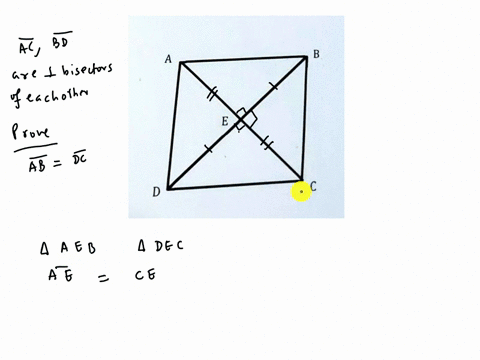 AC, BD
are ⊥ bisectors
of each other
Prove
AB = DC
A
B
E
D
C
Δ AEB Δ DEC
AE = CE